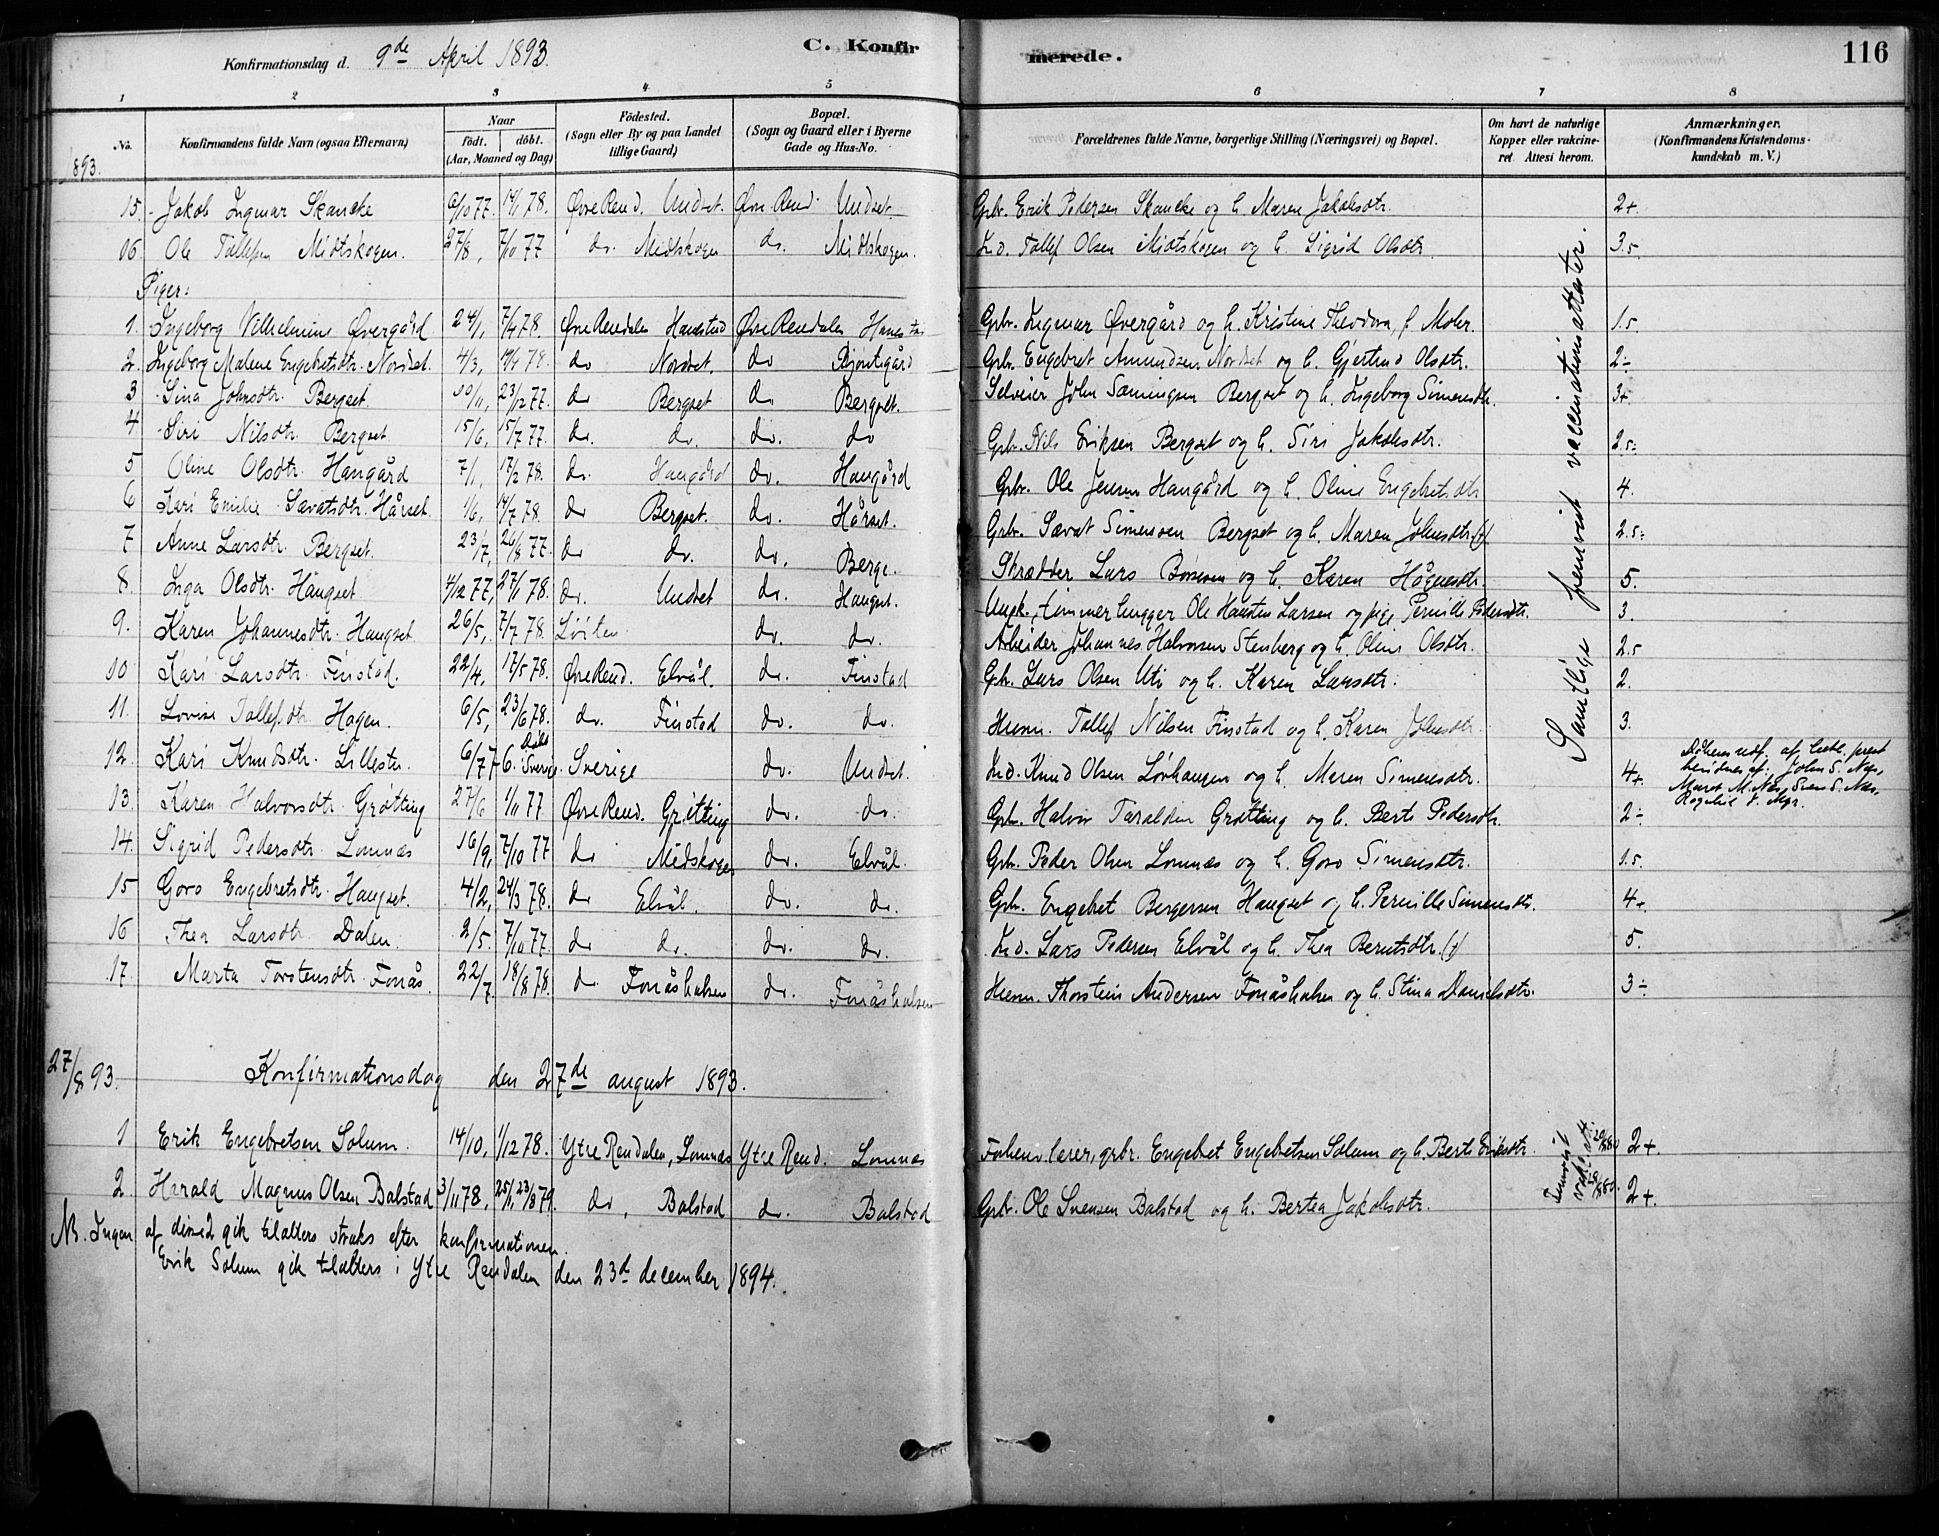 Konfirmationsdag d. 9de April 1893. C. Konfirmerede. 116
1 2 3 4 5 6 7 8
No. Konfirmandens fulde Navn (ogsaa Efternavn) Naar födt. döbt. (Aar, Maaned og Dag) Födested. (Sogn eller By og paa Landet tillige Gaard) Bopæl. (Sogn og Gaard eller i Byerne Gade og Hus-No. Forældrenes fulde Navne, borgerlige Stilling (Næringsvei) og Bopæl. Om havt de naturlige Kopper eller vakcineret. Attest herom. Anmærkninger. (Konfirmandens Kristendomskundskab m. V.)
1893.
15. Jakob Ingmar Skancke 6/10 77. 14/1 78. Øvre Rend. Undset. Øvre Rend. Undset. Gbr. Erik Pedersen Skancke og h. Maren Jakobsdtr. 2+.
16. Ole Tollefsen Midtskogen. 27/8, 7/10 77 do. Midtskogen do. Midtskogen. Ind. Tollef Olsen Midtskogen og h. Sigrid Olsdtr. 3.5
Piger:
1. Ingeborg Vilhelmine Øvergård 24/1, 7/4 78. Øvre Rendalen Hanestad Øvre Rendalen Hanestad Gbr. Ingmar Øvergård og h. Kristine Theodora, f. Mohr. 1.5
2. Ingeborg Malene Engebretsdtr. Nordset. 4/3, 78. do Nordset. do Gbr. Engebret Amundsen Nordset og h. Gjertrud Olsdtr. 2÷
3 Sina Johnsdtr. Bergset. 23/12 77. do Bergset do Bergset. Selveier John Sæmingsen Bergset og h. Ingeborg Simensdtr. 3+
4 Siri Nilsdtr. Bergset 15/6, 15/7 77. do. do. do. do Gbr. Nils Eriksen Bergset og h. Siri Jakobsdtr. 2.5÷
5 Oline Olsdtr. Haugård 7/1, 17/2 78. do. Haugård do. Haugård Gbr. Ole Jensen Haugård og h. Oline Engebretsdtr 4.
6 Kari Emilie Savatsdtr. Hårset 1/6, 14/7 78. do Bergset. do. Hårset. Gbr. Savat Simensen Bergset og h. Maren Johnsdtr. (†) 2.5÷
7 Anne Larsdtr. Bergset. 23/7, 26/8 77. do do. do. Berge. Skrædder Lars Børsesen og h. Karen Høgnesdtr. 5.
8. Inga Olsdtr. Haugset 4/12 77, 27/1 78. do. Undset do. Haugset. Ungk., tømmerhugger Ole Larsen og pige Pernille Pedersdtr. 3.
9. Karen Johannesdtr. Haugset 26/5, 7/7 78. Löiten do. do. Arbeider Johannes Halvorsen Stenberg og h. Oline Olsdtr. 2.5
10 Kari Larsdtr. Finstad. 22/4, 17/5 78. Øvre Rend. Elvål. do. Finstad Gbr. Lars Olsen Uti og h. Karen Larsdtr. 2.
11. Lovise Tollefsdtr. Hagen. 6/5, 23/6 78. do. Finstad do. do. Husm. Tollef Nilsen Finstad og h. Karen Johnsdtr 3.
12. Kari Knudsdtr. Lillestr. 6/7 76. Döbt i Sverige. Sverige do. Undset. Ind. Knud Olsen Lövhaugen og h. Maren Simensdtr. 4+. John S. Næs, Maret M. Næs, Sven S. Næs,
13. Karen Halvorsdtr. Grötting 27/6 1/11 77 Øvre Rend. Grötting do. do. Gbr. Halvor Taraldsen Grötting og h. Berte Pedersdtr. 2÷
14. Sigrid Pedersdtr. Lomnæs 16/9, 7/10 77 do Midskogen do. Elvål. Gbr. Peder Olsen Lomnæs og h. Goro Simensdtr. 1.5
15 Goro Engebretsdtr. Haugset. 4/2, 24/3 78. do Elvål. do. do. Gbr. Engebret Bergersen Haugset og h. Pernille Simensdtr. 4+.
16 Thea Larsdtr. Dalen. 2/5. 7/10 77. do do. do. do. Ind. Lars Pedersen Elvål og h. Thea Berntsdtr. (†) 5.
17. Marta Torstensdtr. Fonås. 22/7. 18/8 78. do Fonåshalsen do. Fonåshalsen Husm. Thorstein Andersen Fonåshalsen og h. Stina Danielsdtr. 3÷
Samtlige fremvist vaccinationsattester.
27/8 93. Konfirmationsdag den 27de august 1893.
1 Erik Engebretsen Solum. 14/10, 1/12 78. Ytre Rendalen, Lomnæs Ytre Rend. Lomnæs Forhenv. lærer, grbr. Engebret Engebretsen Solum og h. Berte Eriksdtr. 2+.
2. Harald Magnus Olsen Balstad 3/11 78, 25/1, 23/3 79. do, Balstad do. Balstad Gbr. Ole Svensen Balstad og h. Bertea Jakobsdtr. 2+.
NB. Ingen af disse 2 gik tilalters straks efter konfirmationen.
Erik Solum gik tilalters i Ytre Rendalen den 23de december 1894.